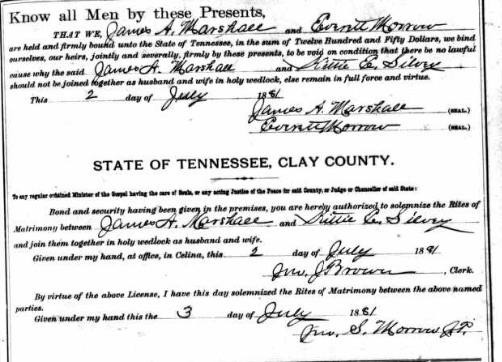 Know all Men by these Presents,
THAT WE, James A. Marshall and Everett Morrow
are held and firmly bound unto the State of Tennessee, in the sum of Twelve Hundred and Fifty Dollars, we bind
ourselves, our heirs, jointly and severally, firmly by these presents, to be void on condition that there be no lawful
cause why the said James A. Marshall and E.
should not be joined together as husband and wife in holy wedlock, else remain in full force and virtue.
This 2 day of July 1881
James A. Marshall (SEAL.)
Everett Morrow (SEAL.)
STATE OF TENNESSEE, CLAY COUNTY.
To any regular ordained Minister of the Gospel having the care of Souls, or any acting Justice of the Peace for said County, or Judge or Chancellor of said State:
Bond and security having been given in the premises, you are hereby authorized to solemnize the Rites of
Matrimony between James A. Marshall and E.
and join them together in holy wedlock as husband and wife.
Given under my hand, at office, in Celina, this 2 day of July 1881
Jno. J. Brown, Clerk.
By virtue of the above License, I have this day solemnized the Rites of Matrimony between the above named
parties.
Given under my hand this the 3 day of July 1881
Jno. S. Morrow J.P.